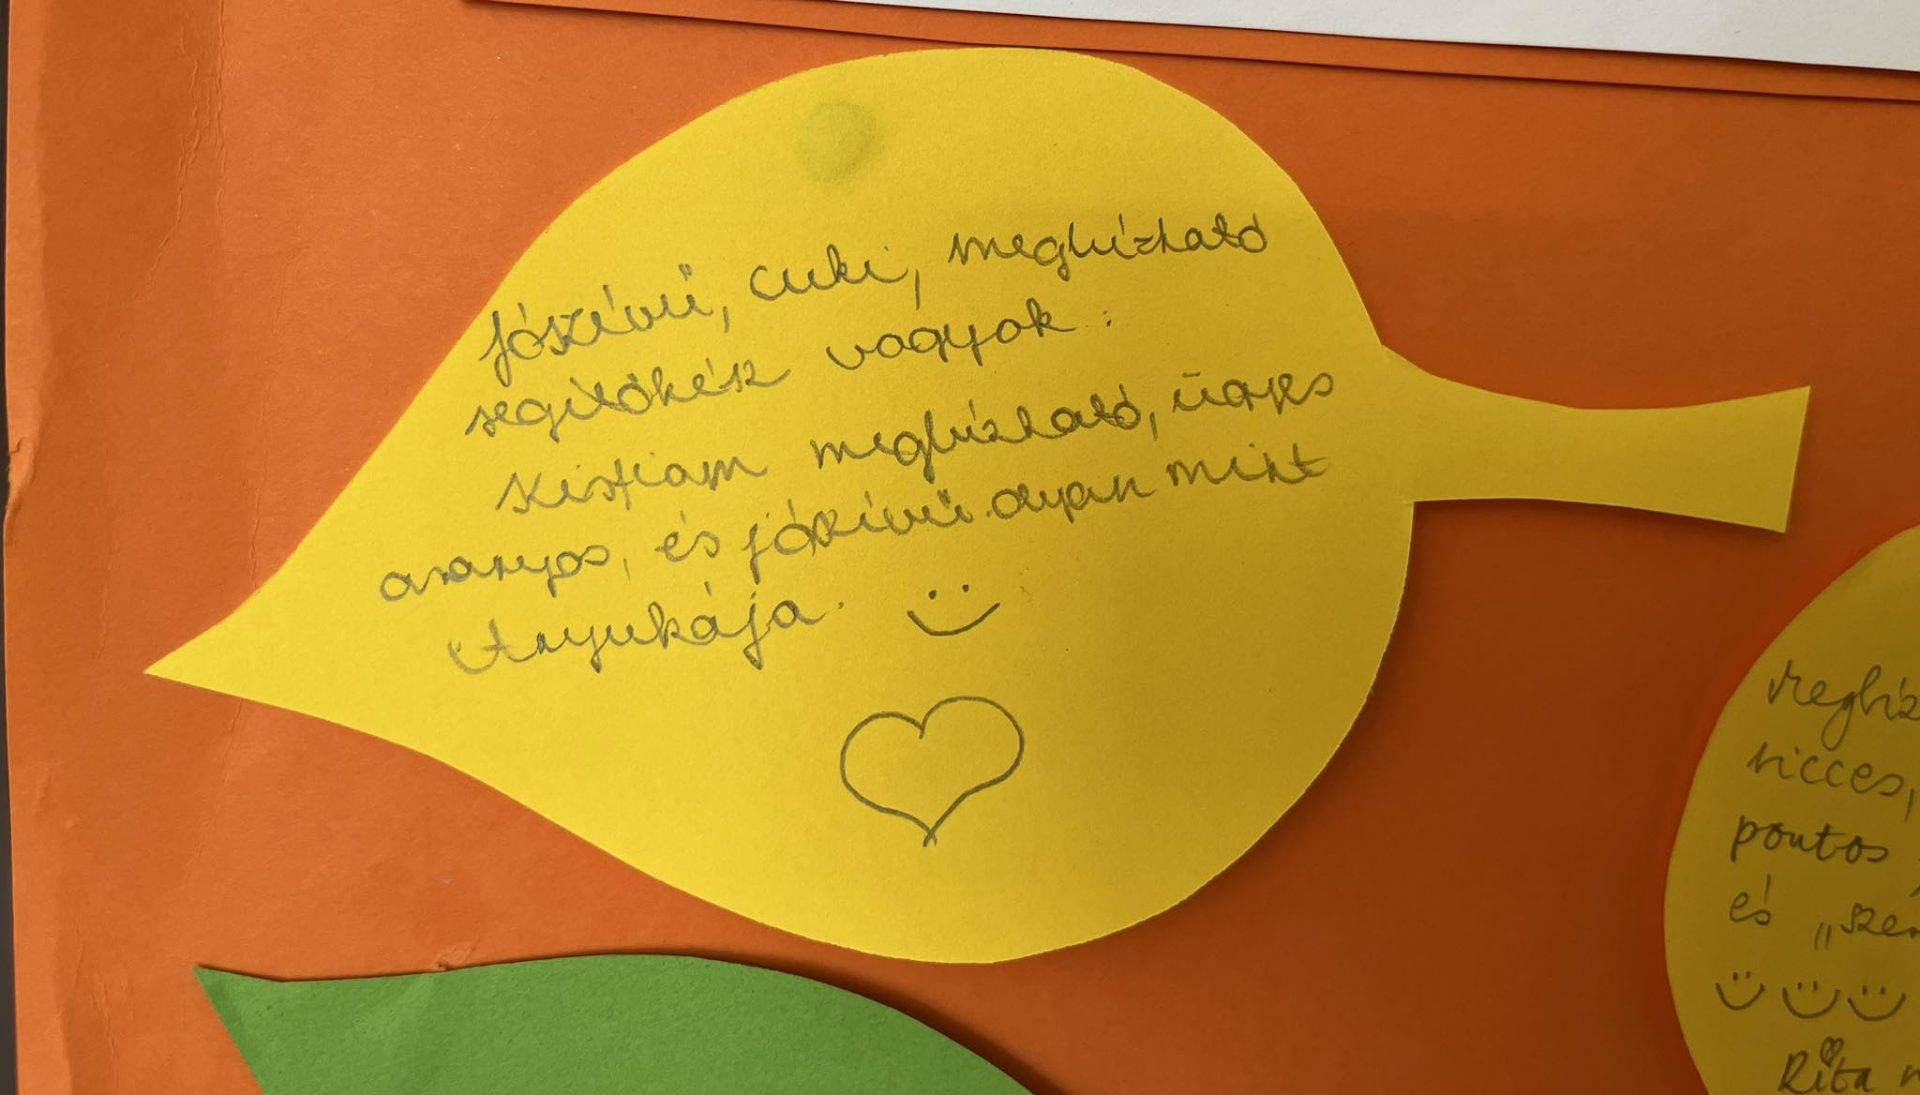 Jószívű, cuki, megbízható
segítőkész vagyok.
Kisfiam megbízható, ügyes
aranyos, és jószívű olyan mint
Anyukája.
Megbíz
vicces,
pontos
és „szer
Rita